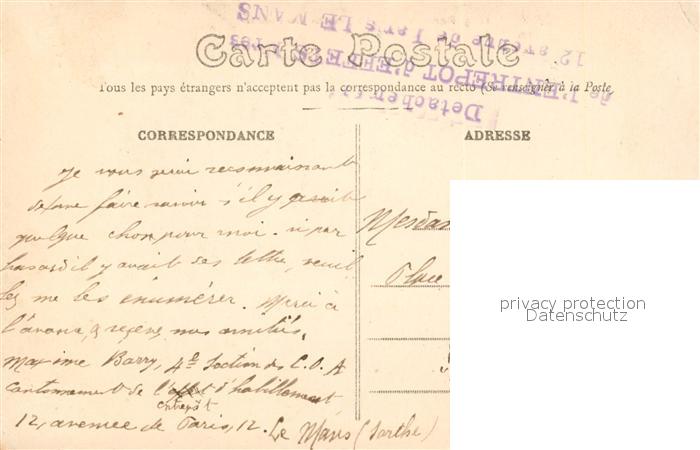 Carte Postale
Tous les pays étrangers n'acceptent pas la correspondance au recto (Se renseigner à la Poste
Détachem
de l'ENTREPOT d'EFFETS
12 avenue de Paris LE MANS
CORRESPONDANCE
Je vous serai reconnaissant
de me faire savoir s'il y avait
quelque chose pour moi. si par
hasard il y avait des lettre, veuil
lez me les énumérer. Merci à
l'avance, & recevez mes amitiés.
Maxime Barry, 4e Section de C.O.A
Cantonnement de l'entrepôt d'habillement
12, avenue de Paris, 12. Le Mans (Sarthe)
ADRESSE
Mesdam
Place
privacy protection
Datenschutz